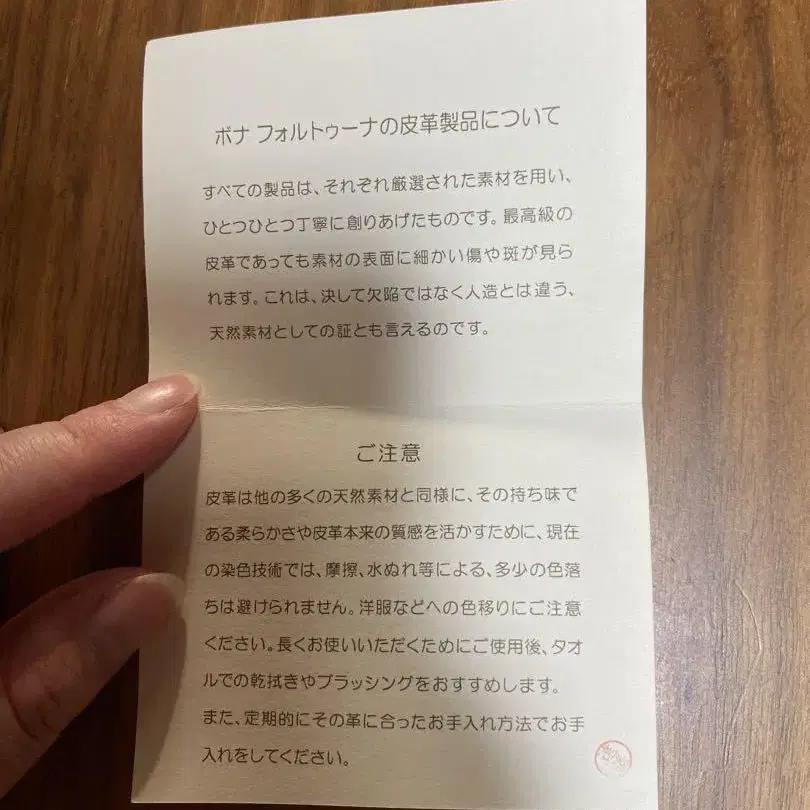 ボナ フォルトゥーナの皮革製品について
すべての製品は、それぞれ厳選された素材を用い、
ひとつひとつ丁寧に創りあげたものです。最高級の
皮革であっても素材の表面に細かい傷や斑が見ら
れます。これは、決して欠陥ではなく人造とは違う、
天然素材としての証とも言えるのです。
ご注意
皮革は他の多くの天然素材と同様に、その持ち味で
ある柔らかさや皮革本来の質感を活かすために、現在
の染色技術では、摩擦、水ぬれ等による、多少の色落
ちは避けられません。洋服などへの色移りにご注意
ください。長くお使いいただくためにご使用後、タオ
ルでの乾拭きやブラッシングをおすすめします。
また、定期的にその革に合ったお手入れ方法でお手
入れをしてください。